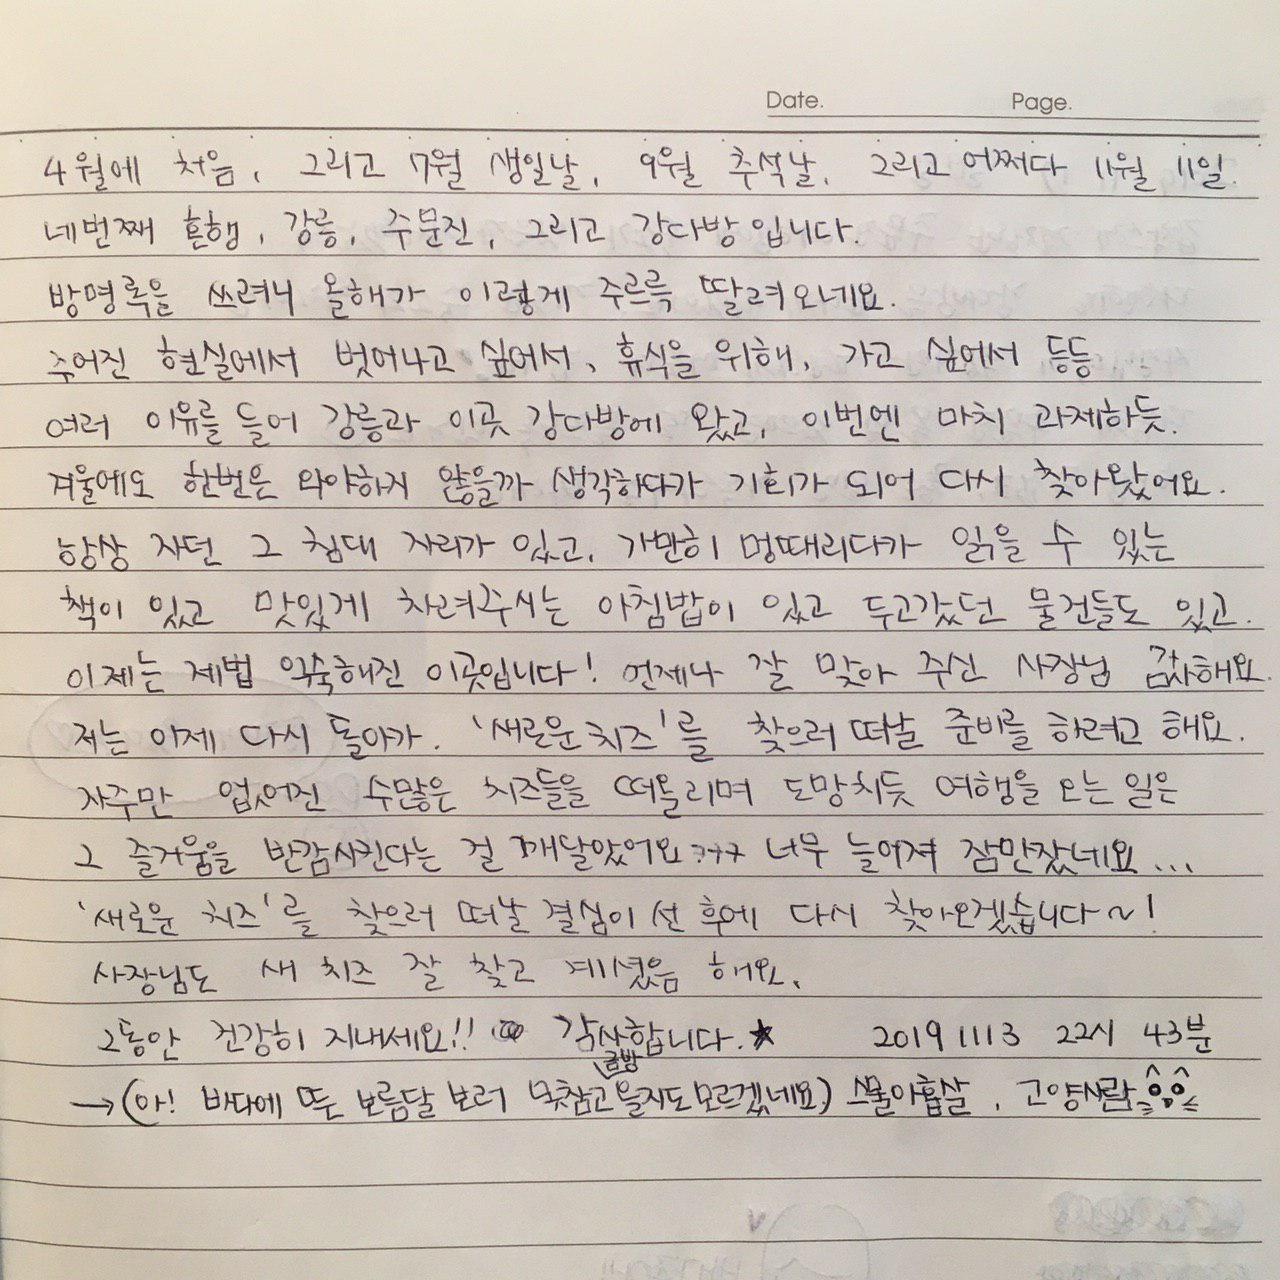 Date. Page.
4월에 처음, 그리고 7월 생일날, 9월 추석날, 그리고 어쩌다 11월 11일.
네번째 혼행, 강릉, 주문진, 그리고 강다방입니다.
방명록을 쓰려니 올해가 이렇게 주르륵 딸려오네요.
주어진 현실에서 벗어나고 싶어서, 휴식을 위해, 가고 싶어서 등등
여러 이유를 들어 강릉과 이곳 강다방에 왔고, 이번엔 마치 과제하듯.
겨울에도 한번은 와야하지 않을까 생각하다가 기회가 되어 다시 찾아왔어요.
항상 자던 그 침대 자리가 있고, 가만히 멍때리다가 읽을 수 있는
책이 있고 맛있게 차려주시는 아침밥이 있고 두고갔던 물건들도 있고.
이제는 제법 익숙해진 이곳입니다! 언제나 잘 맞아 주신 사장님 감사해요.
저는 이제 다시 돌아가. '새로운 치즈'를 찾으러 떠날 준비를 하려고 해요.
자주만 없어진 수많은 치즈들을 떠올리며 도망치듯 여행을 오는 일은
그 즐거움을 반감시킨다는 걸 깨달았어요ㅋㅋㅋ 너무 늘어져 잠만잤네요...
'새로운 치즈'를 찾으러 떠날 결심이 선 후에 다시 찾아오겠습니다~!
사장님도 새 치즈 잘 찾고 계셨음 해요.
그동안 건강히 지내세요!! 감사합니다.★ 2019 11 13 22시 43분
금방
→(아! 바다에 뜬 보름달 보러 못참고 올지도 모르겠네요) 스물아홉살, 고양사람